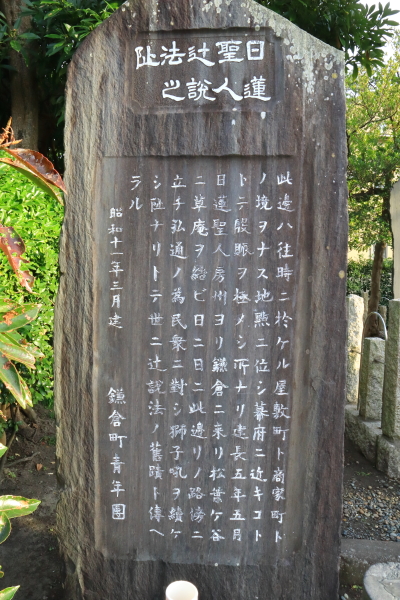 日蓮
聖人
辻説
法之
阯
此邊ハ往時ニ於ケル屋敷町ト商家町ト
ノ境ヲナス地點ニ位シ幕府ニ近キコト
トテ殷賑ヲ極メシ所ナリ建長五年五月
日蓮聖人房州ヨリ鎌倉ニ来リ松葉ケ谷
ニ草庵ヲ結ビ日ニ日ニ此邊リノ路傍ニ
立チ弘通ノ為民衆ニ對シ獅子吼ヲ續ケ
シ阯ナリトテ世ニ辻說法ノ舊蹟ト傳ヘ
ラル
昭和十一年三月建
鎌倉町青年團